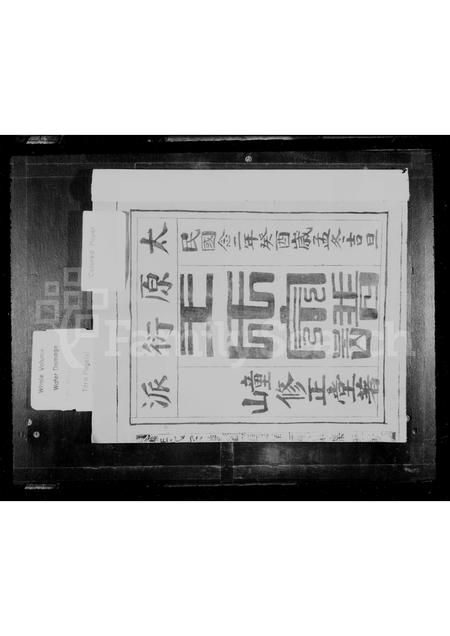 民國念二年癸酉歲孟冬吉旦
太原衍派
王氏宗譜
山修正堂著
Colored Paper
Whole Volume
Water Damage
Torn Page(s)
FamilySearch